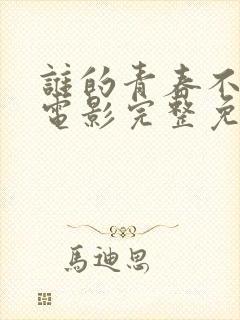 誰的青春不
電影完整免
馬迪思